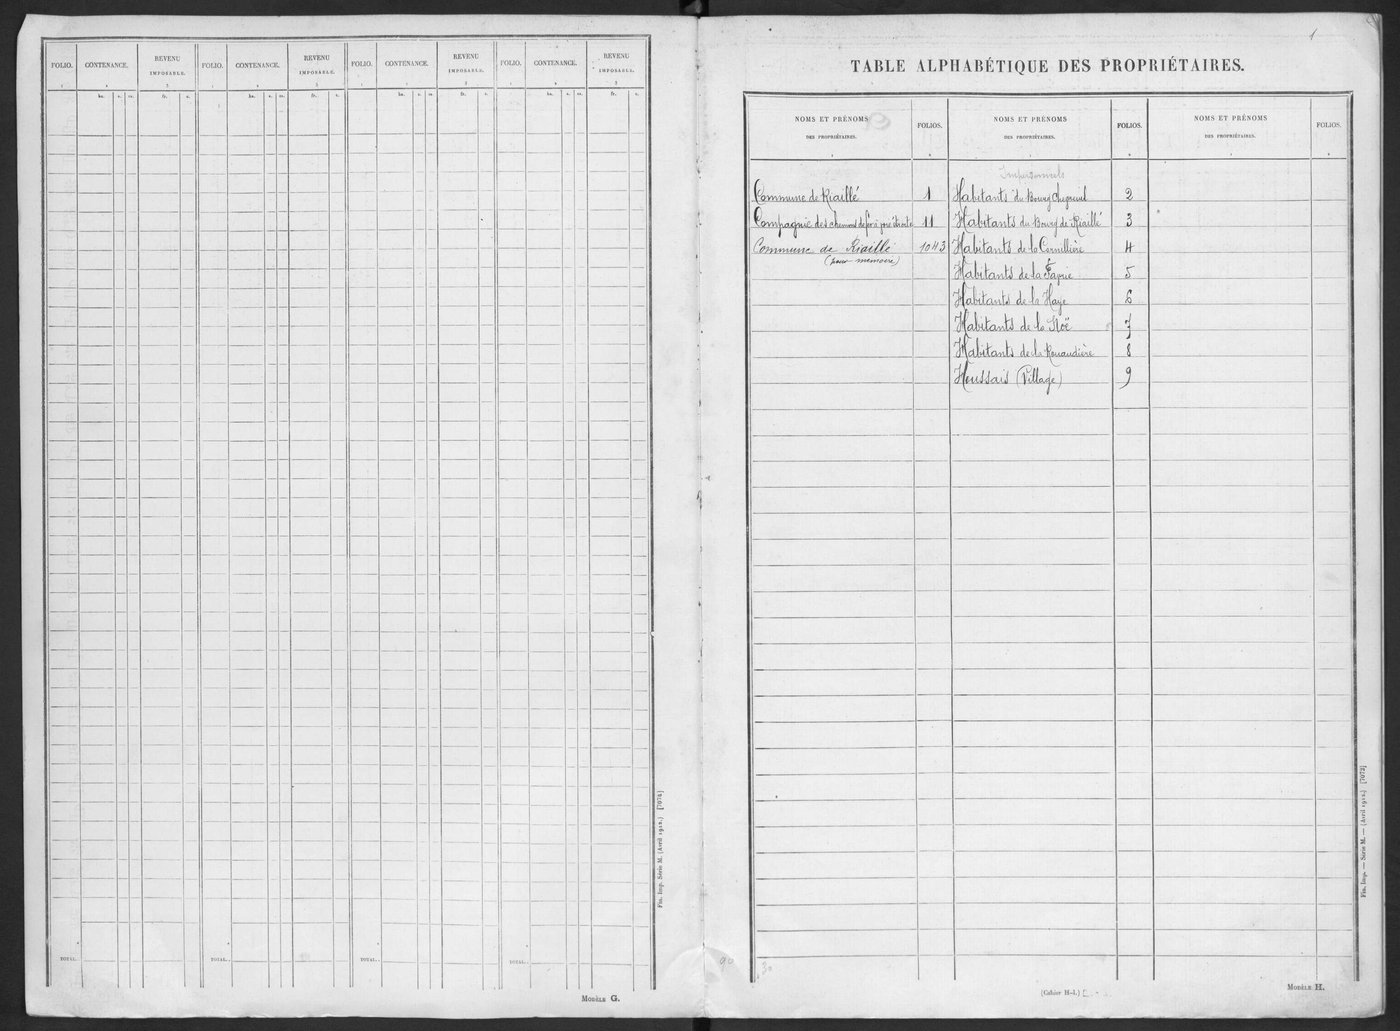 FOLIO. CONTENANCE. REVENU IMPOSABLE. FOLIO. CONTENANCE. REVENU IMPOSABLE. FOLIO. CONTENANCE. REVENU IMPOSABLE. FOLIO. CONTENANCE. REVENU IMPOSABLE.
1 2 3 1 2 3 1 2 3 1 2 3
ha. a. ca. fr. c. ha. a. ca. fr. c. ha. a. ca. fr. c. ha. a. ca. fr. c.
TOTAL. TOTAL. TOTAL. TOTAL.
Fin. Imp. Série M. (Avril 1912.) [7074]
MODÈLE G.
90
1
TABLE ALPHABÉTIQUE DES PROPRIÉTAIRES.
NOMS ET PRÉNOMS DES PROPRIÉTAIRES. FOLIOS. NOMS ET PRÉNOMS DES PROPRIÉTAIRES. FOLIOS. NOMS ET PRÉNOMS DES PROPRIÉTAIRES. FOLIOS.
Commune de Riaillé 1
Compagnie des chemins de fer à voie étroite 11
Commune de Riaillé 1043
(pour mémoire)
Impersonnels
Habitants du Bourg Chegreuil 2
Habitants du Bourg de Riaillé 3
Habitants de la Cornillière 4
Habitants de la 5
Habitants de la Haye 6
Habitants de la Noë 7
Habitants de la Rouaudière 8
Houssais (Village) 9
30
(Cahier H-1.)
MODÈLE H.
Fin. Imp. — Série M. — (Avril 1912.) [7073]